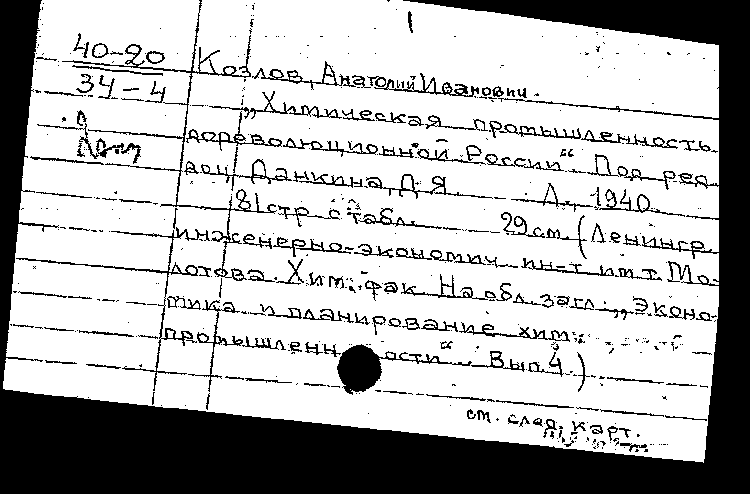 1
40-20 Козлов, Анатолий Иванович.
34-4
„Химическая промышленность
дореволюционной России“. Под ред.
доц. Данкина, Д. Я. Л., 1940.
81 стр. с табл. 29 см. (Ленингр.
инженерно-экономич. ин-т им. т. Мо-
лотова. Хим. фак. На обл. загл.: „Эконо-
мика и планирование хим.
промышленности“. Вып. 4.)
см. след. карт.